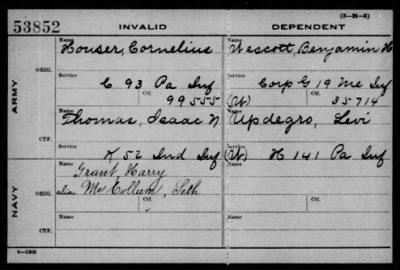 (3-H-3)
53852 INVALID DEPENDENT
Name Name
Houser, Cornelius Wescott, Benjamin H
ORIG.
Service Service
C 93 Pa Inf Corp G 19 Me Inf
Ctf. Ctf.
99555 (Wt) 35714
ARMY
Name Name
Thomas, Isaac N Updegro, Levi
Service Service
K 52 Ind Inf (Wt) H 141 Pa Inf
Name Name
Grant, Harry
alias McCollum, Seth
ORIG.
Service Service
Ctf. Ctf.
NAVY
Name Name
Service Service